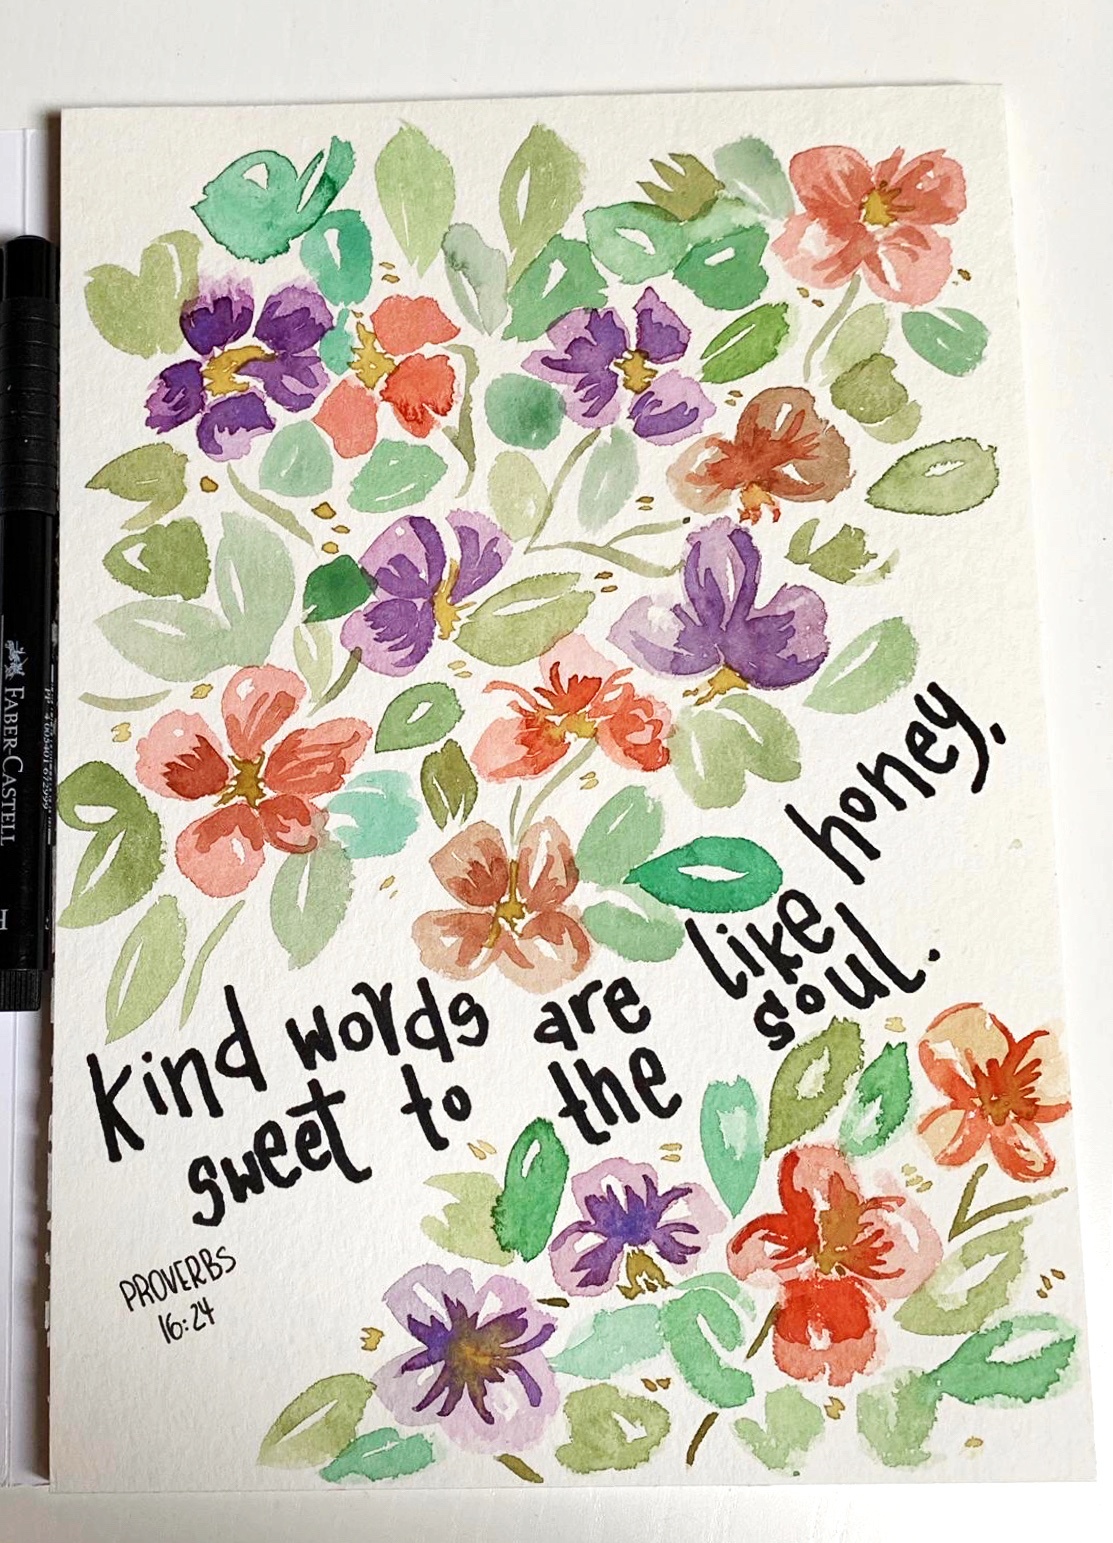 kind words are like honey,
sweet to the soul.
PROVERBS
16:24
FABER-CASTELL